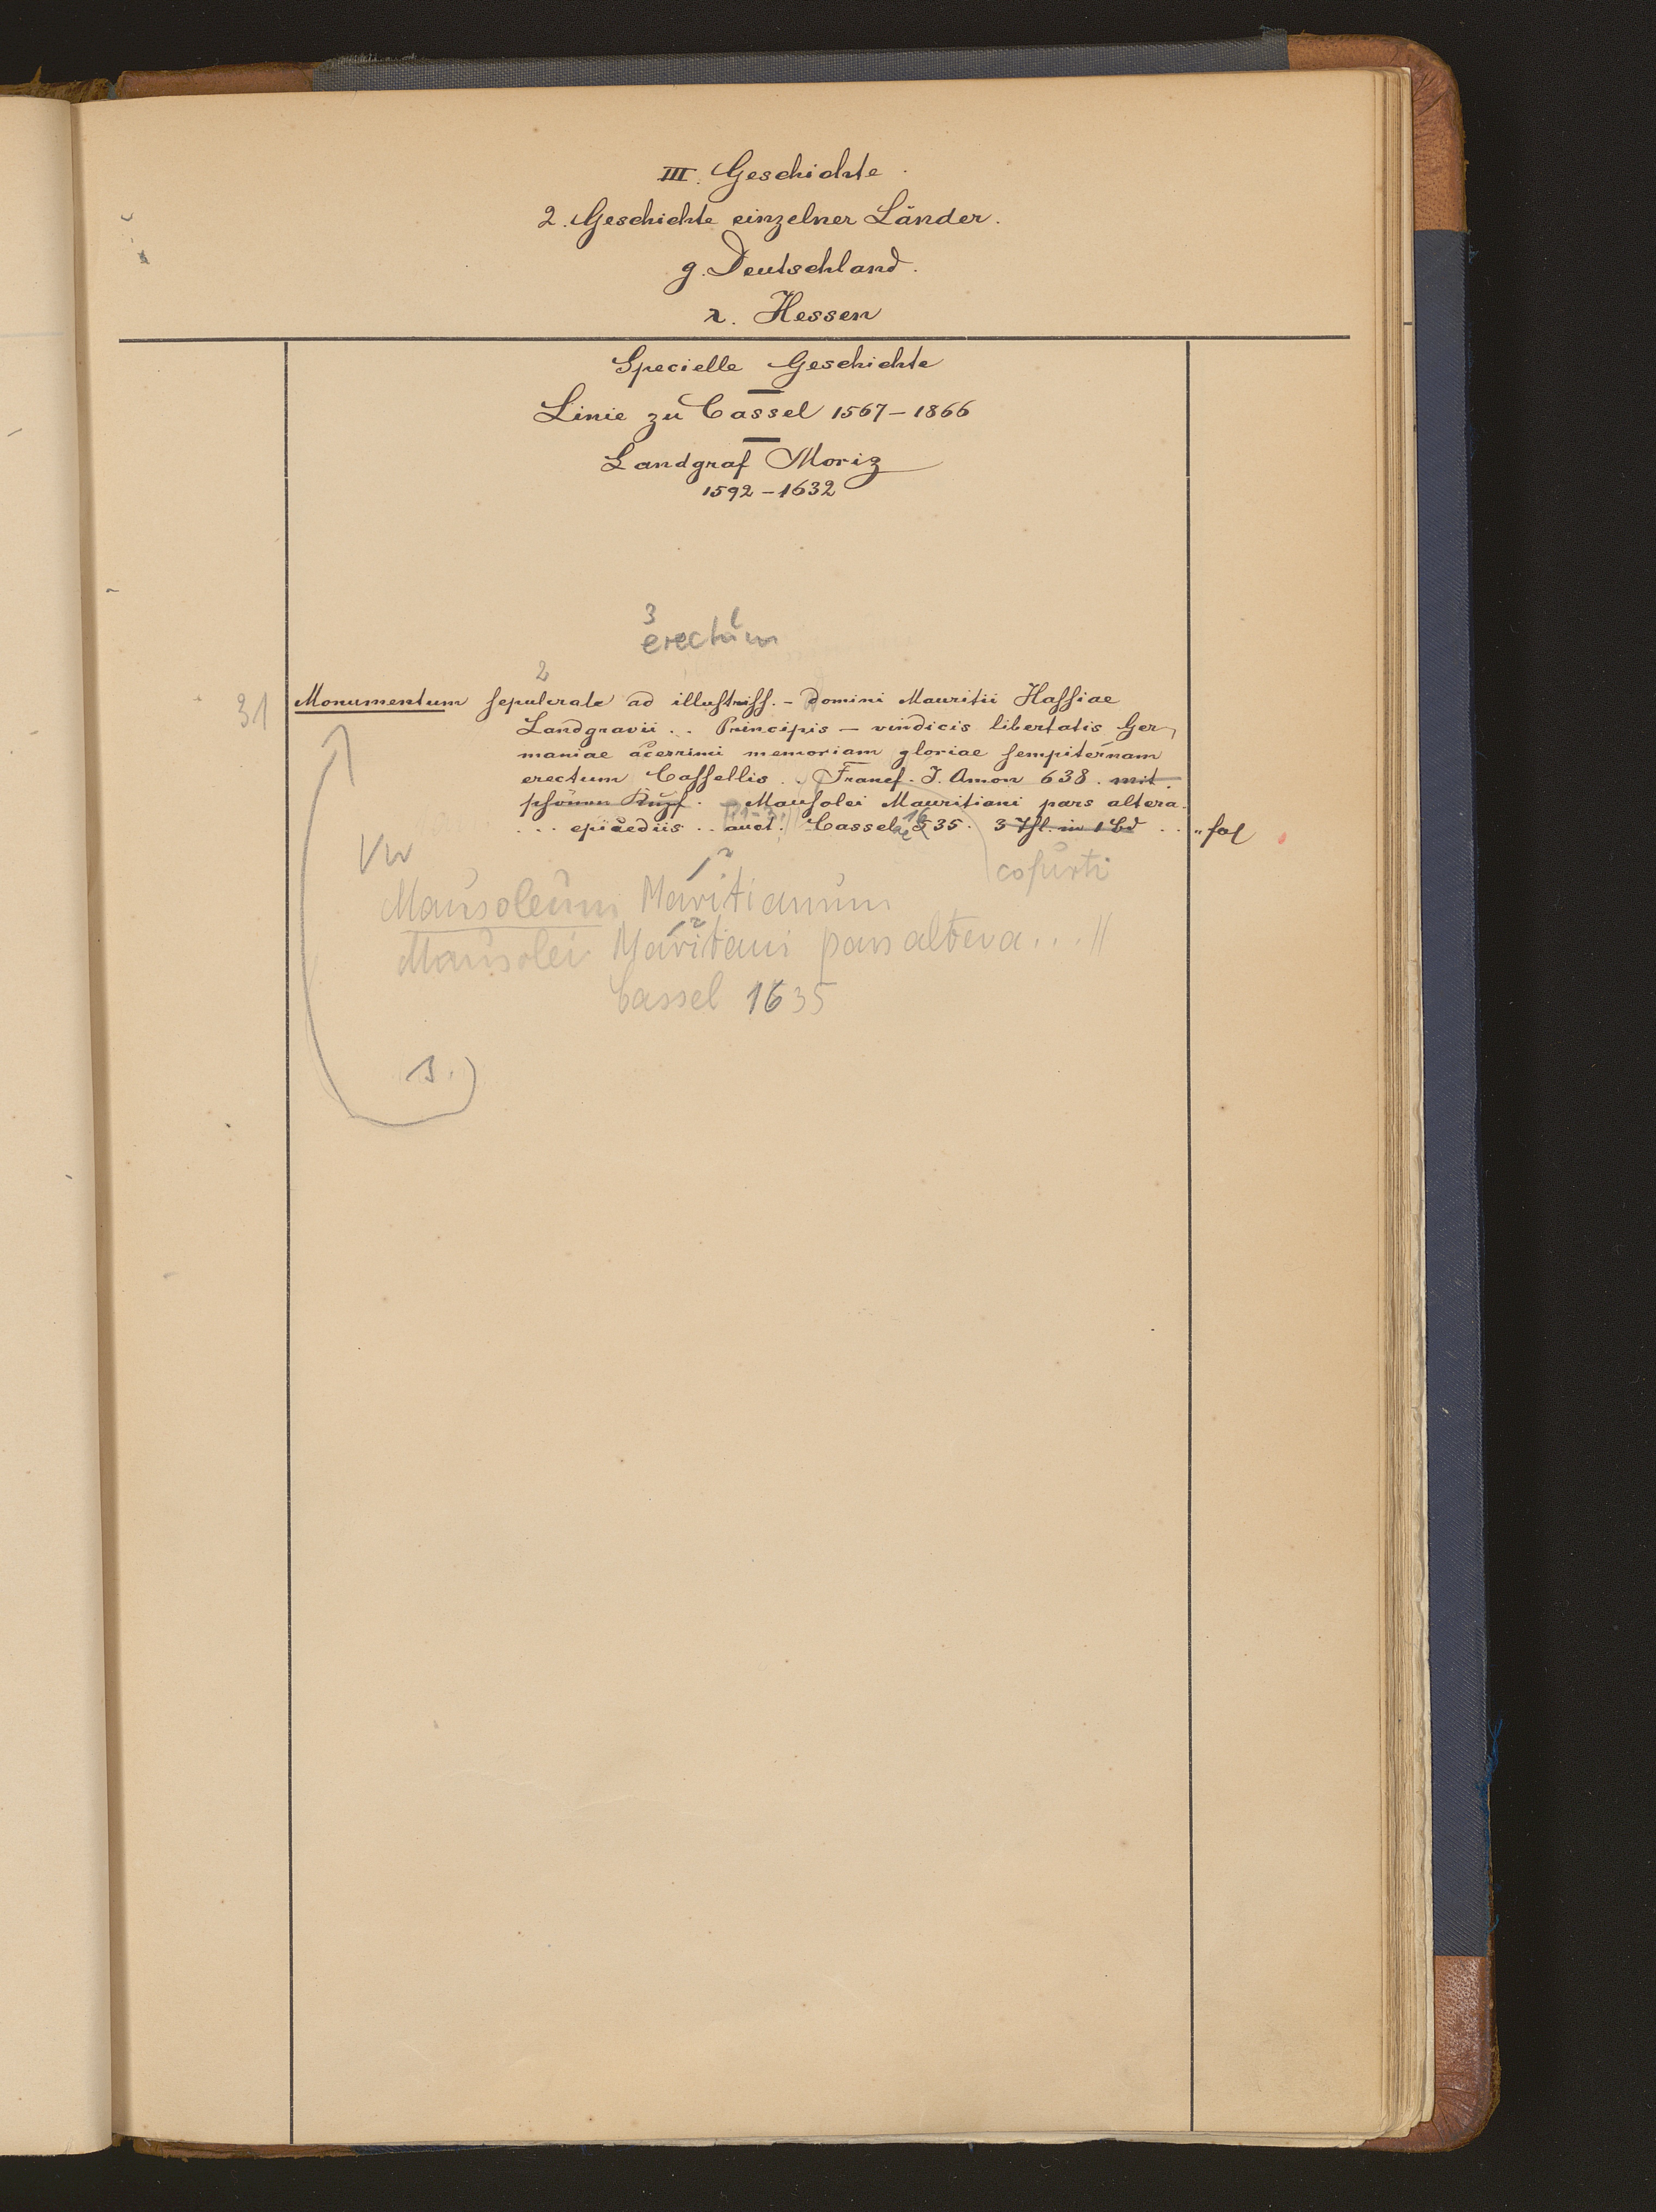 III. Geschichte.
2. Geschichte einzelner Länder.
g. Deutschland.
r. Hessen
Specielle Geschichte
Linie zu Cassel 1567–1866
Landgraf Moriz
1592–1632
3 1
erectum
2
31 Monumentum sepulcrale ad illustriss. – Domini Mauritii Hassiae
Landgravii .. Principis – vindicis libertatis Ger-
maniae acerrimi memoriam gloriae sempiternam
erectum Cassellis .. Francf. J. Amon 638. mit
schönen Kupf. Mausolei Mauritiani pars altera.
... epicediis .. auct. Cassel 1635. 3 Thl. in 1 Bd .. " fol
Vw
Mausoleum Mauritianum
Mausolei Mauritiani pars altera ... //
Cassel 1635